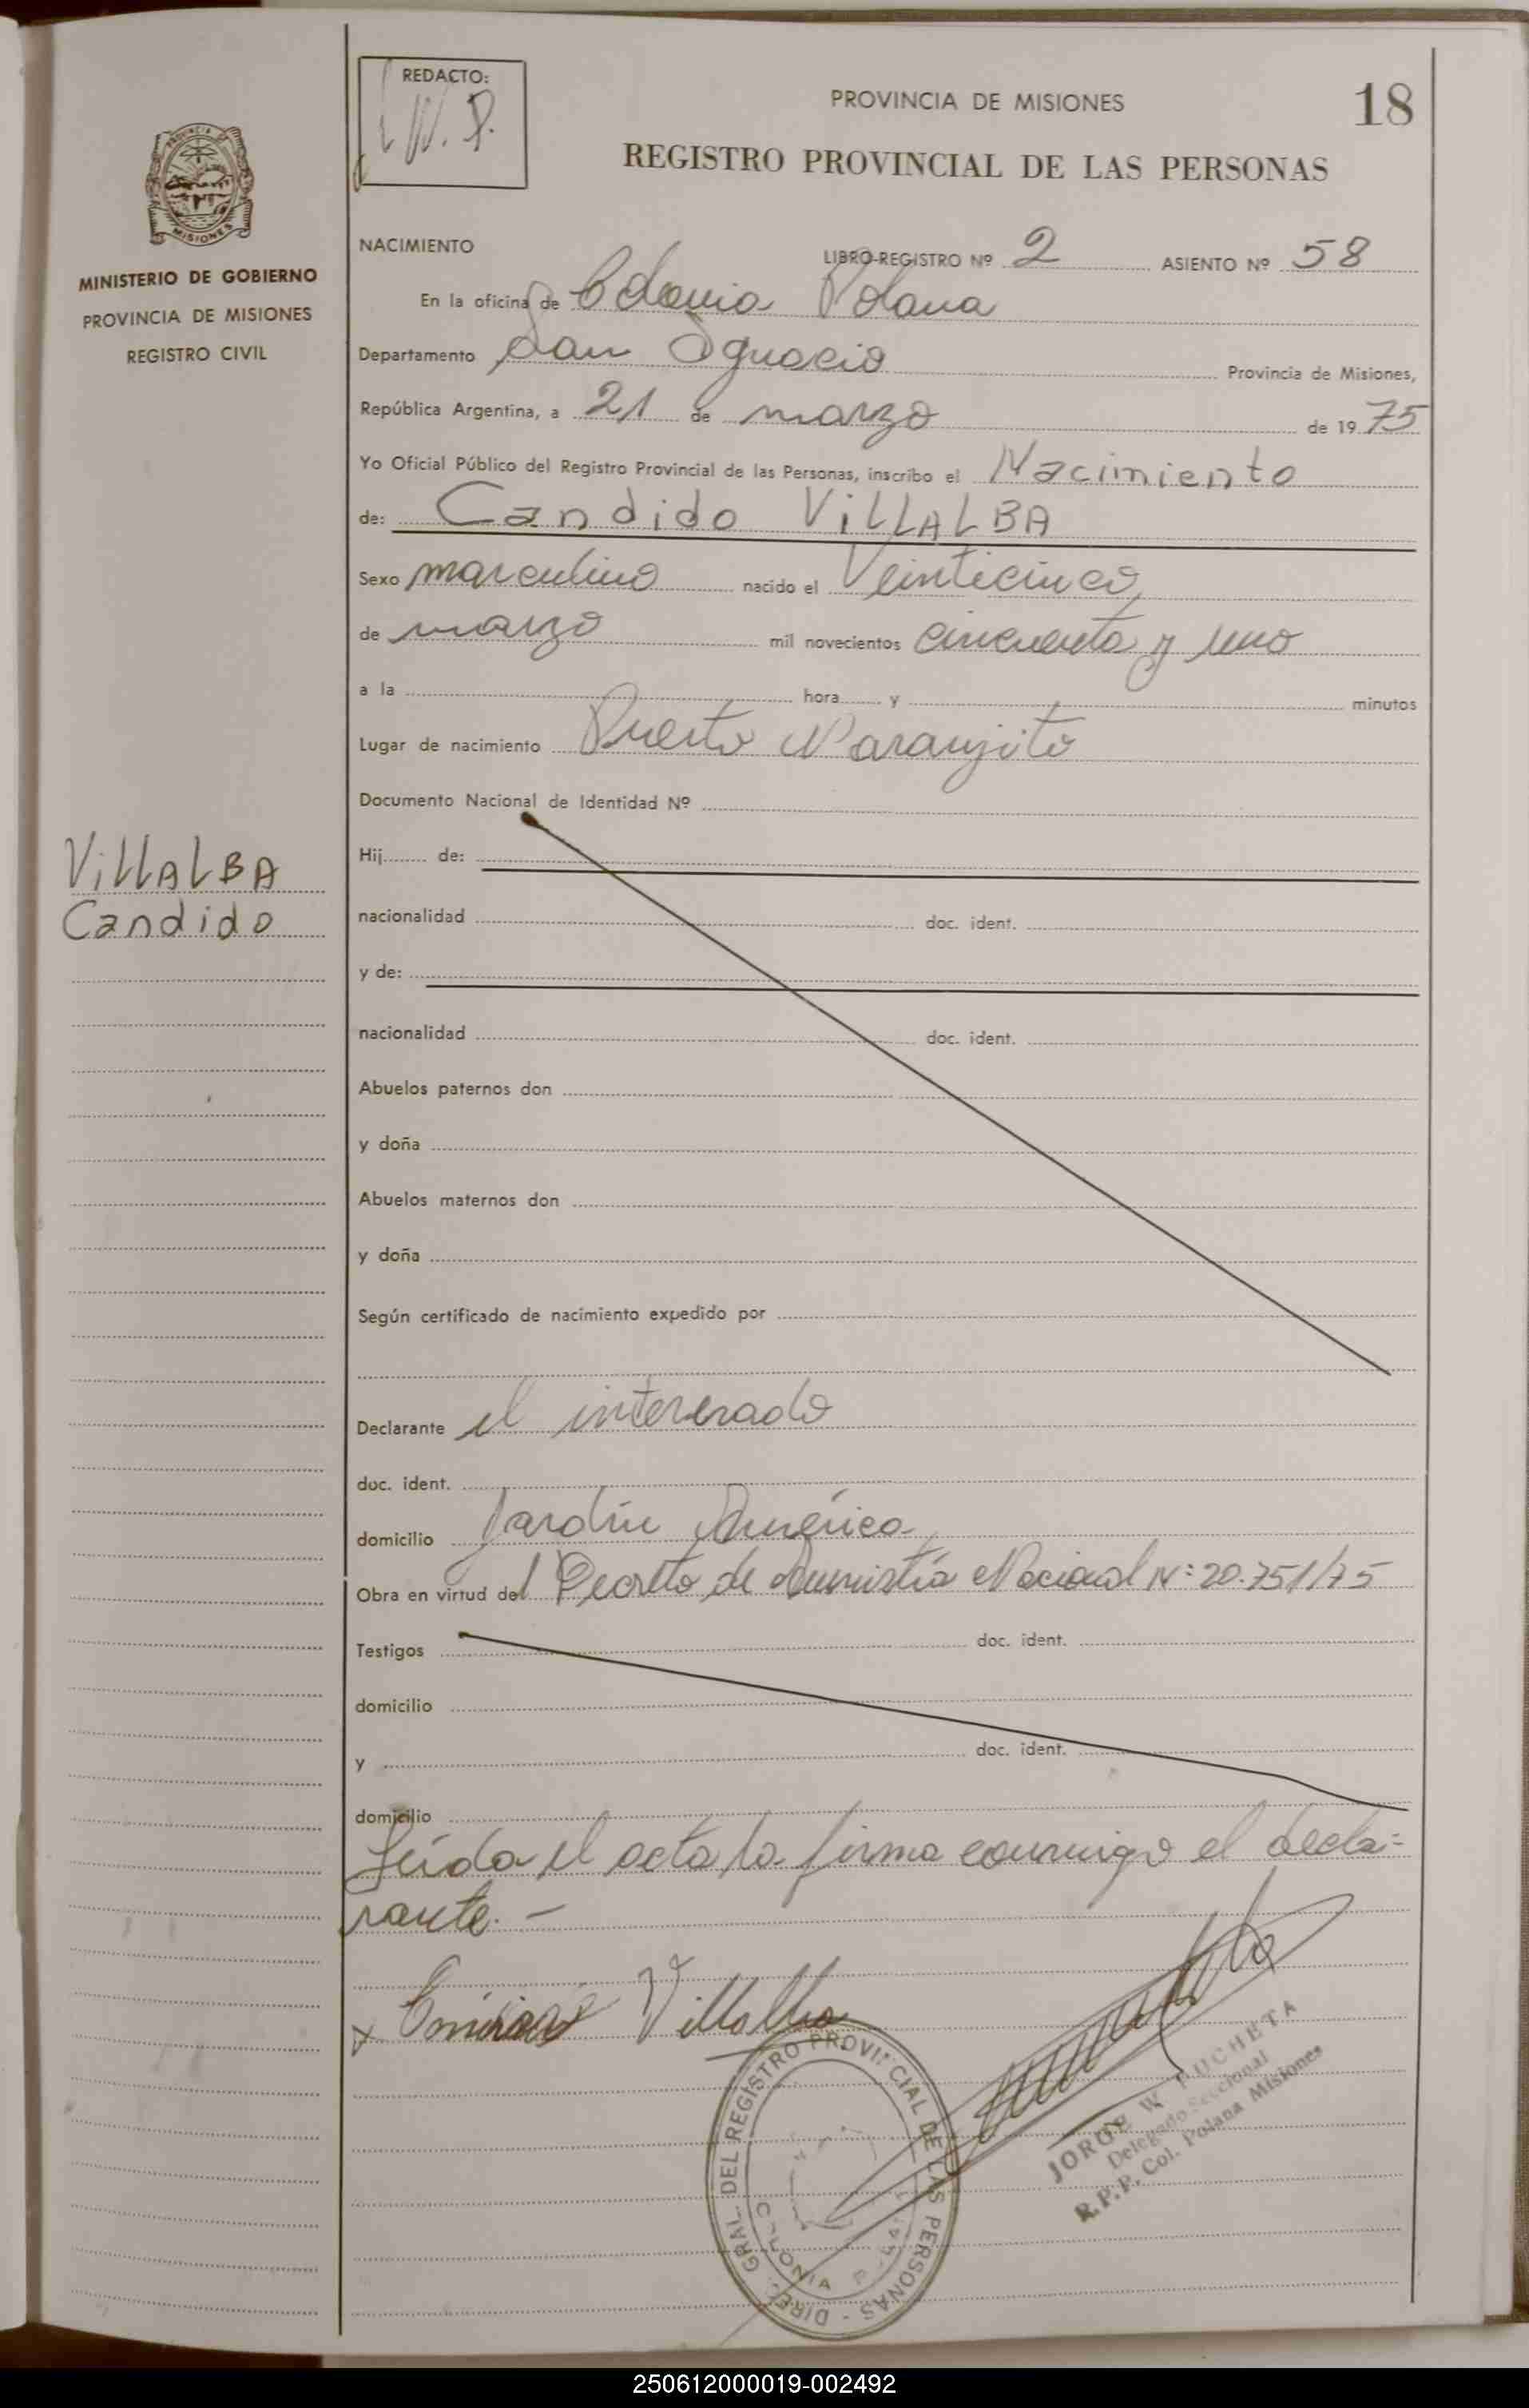 REDACTO:
W. P.
PROVINCIA DE MISIONES
18
REGISTRO PROVINCIAL DE LAS PERSONAS
MISIONES
MINISTERIO DE GOBIERNO
PROVINCIA DE MISIONES
REGISTRO CIVIL
NACIMIENTO LIBRO-REGISTRO Nº 2 ASIENTO Nº 58
En la oficina de Colonia Polana
Departamento San Ignacio Provincia de Misiones,
República Argentina, a 21 de marzo de 1975
Yo Oficial Público del Registro Provincial de las Personas, inscribo el Nacimiento
de: Candido VILLALBA
Sexo masculino nacido el Veinticinco
de marzo mil novecientos cincuenta y uno
a la hora y minutos
Lugar de nacimiento Puerto Naranjito
Documento Nacional de Identidad Nº
VILLALBA
Candido
Hij de:
nacionalidad doc. ident.
y de:
nacionalidad doc. ident.
Abuelos paternos don
y doña
Abuelos maternos don
y doña
Según certificado de nacimiento expedido por
Declarante el interesado
doc. ident.
domicilio Jardín América
Obra en virtud del Decreto de Amnistía Nacional Nº 20.751/75
Testigos doc. ident.
domicilio
y doc. ident.
domicilio
Leída el acta la firma conmigo el decla-
rante. -
x Villalba
DIREC. GRAL. DEL REGISTRO PROVINCIAL DE LAS PERSONAS -
COLONIA
JORGE W. PUCHETA
Delegado Seccional
R.P.P. Col. Polana Misiones
250612000019-002492